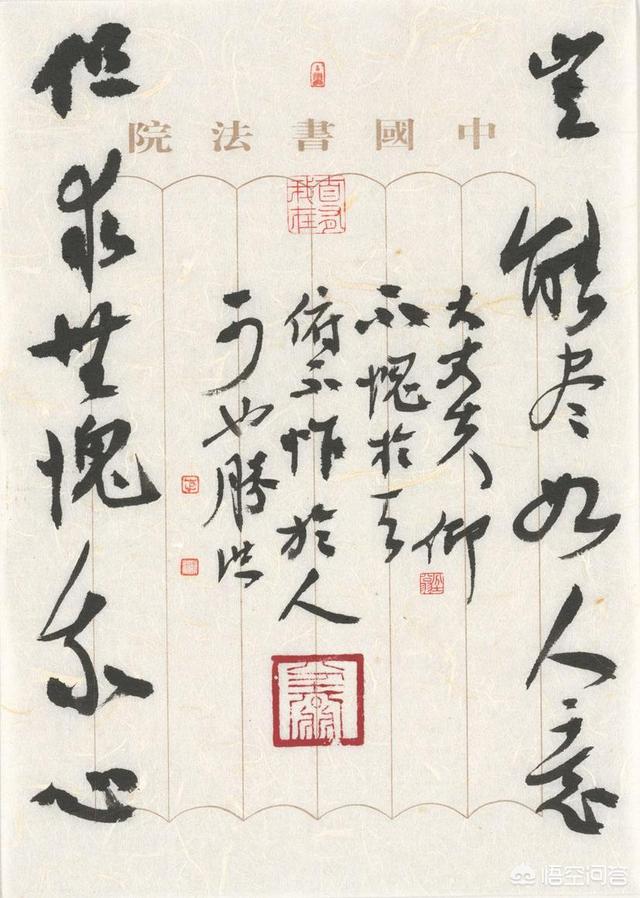 中國書法院
豈能尽如人意
大丈夫仰
不愧於天
俯不怍於人
可也勝洪
但求無愧我心
悟空问答